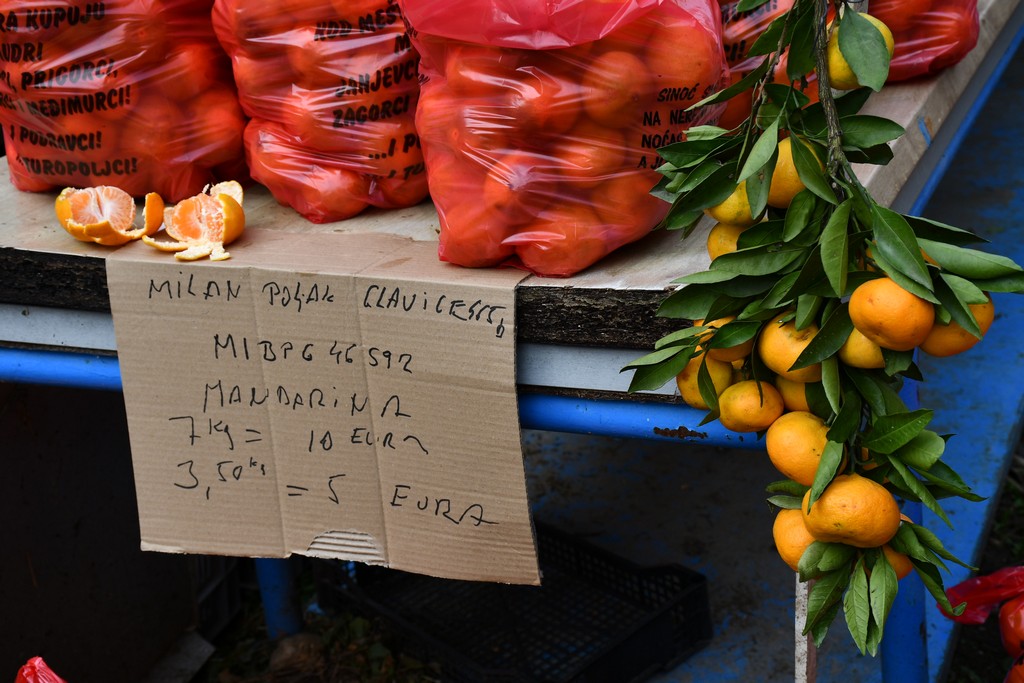 RA KUPUJU
MUDRI!
I, PRIGORCI,
I MEĐIMURCI!
I PODRAVCI!
TUROPOLJCI!
KOD MEŠ
JANJEVC
ZAGORCI
...I P
SINOĆ
NA NER
NOĆAS
A J
MILAN POLJAK
MIBPG 46592
MANDARINA
7 Kg = 10 EURA
3,50 kg = 5 EURA